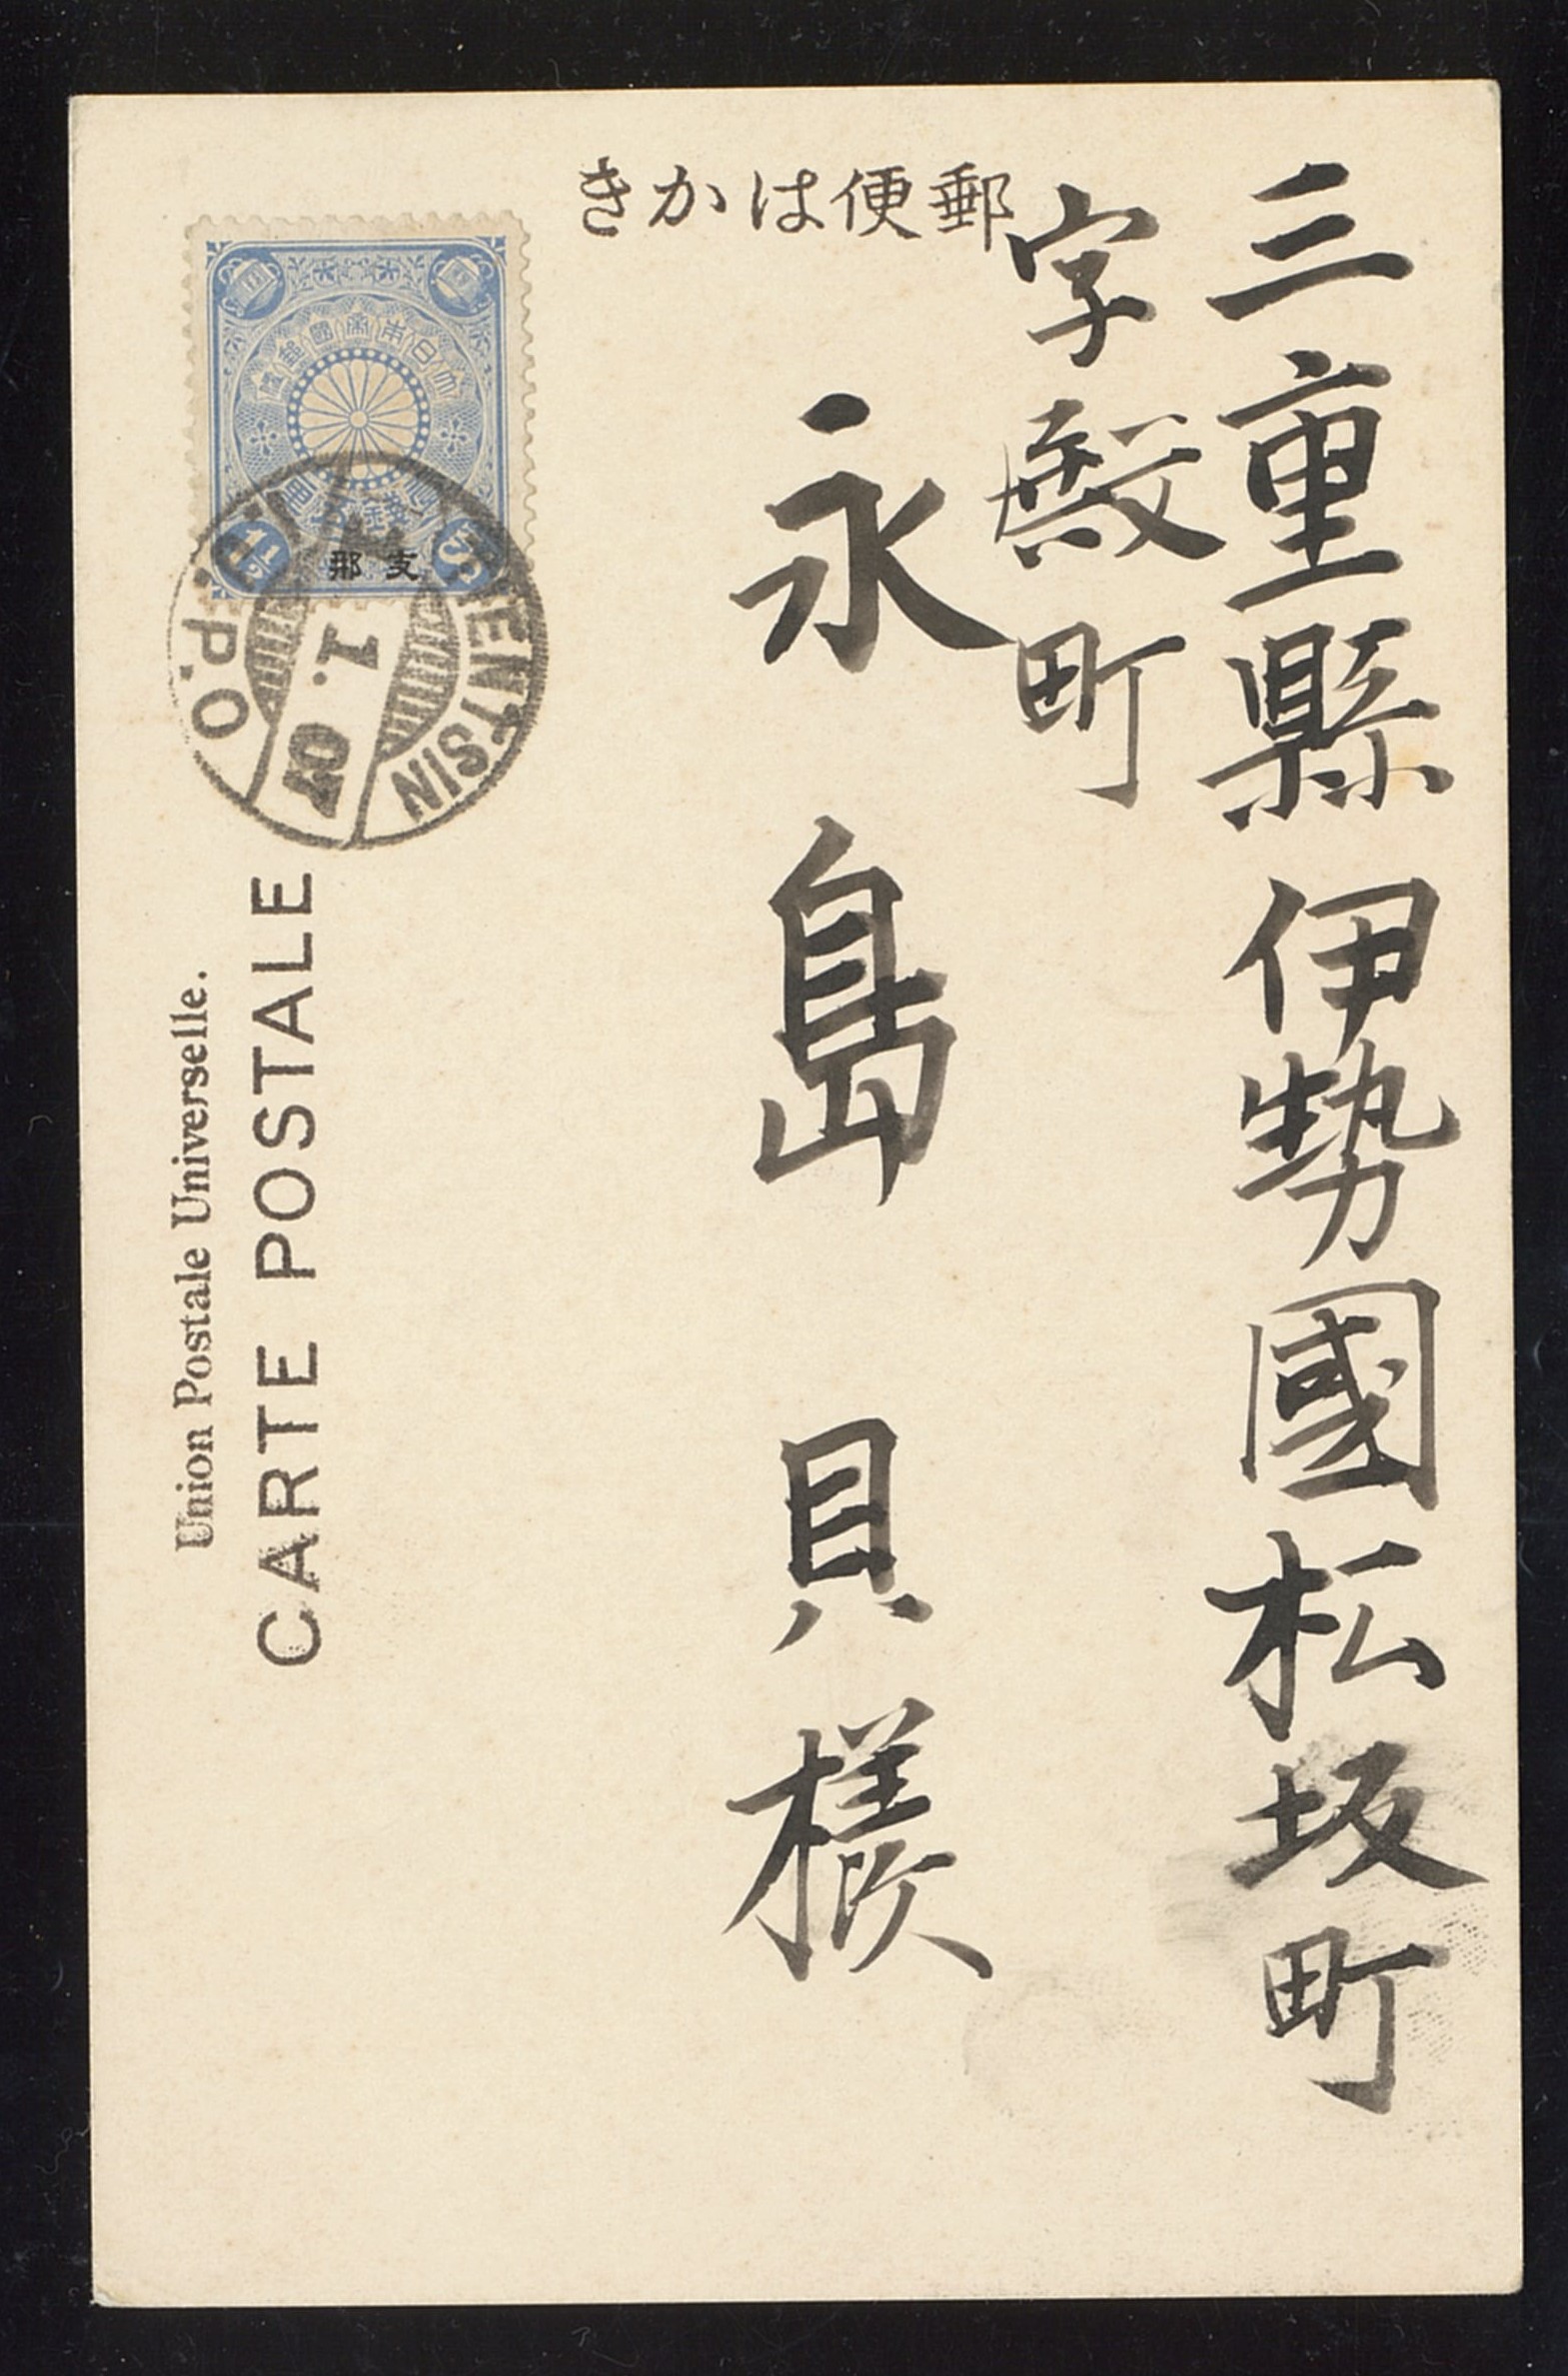 郵便はかき
三重縣伊勢國松坂町
字殿町
永島貝様
大日本帝國郵便
壹錢五厘
1½ Sn
支那
TIENTSIN
1. 1. 07
I.J.P.O.
Union Postale Universelle.
CARTE POSTALE